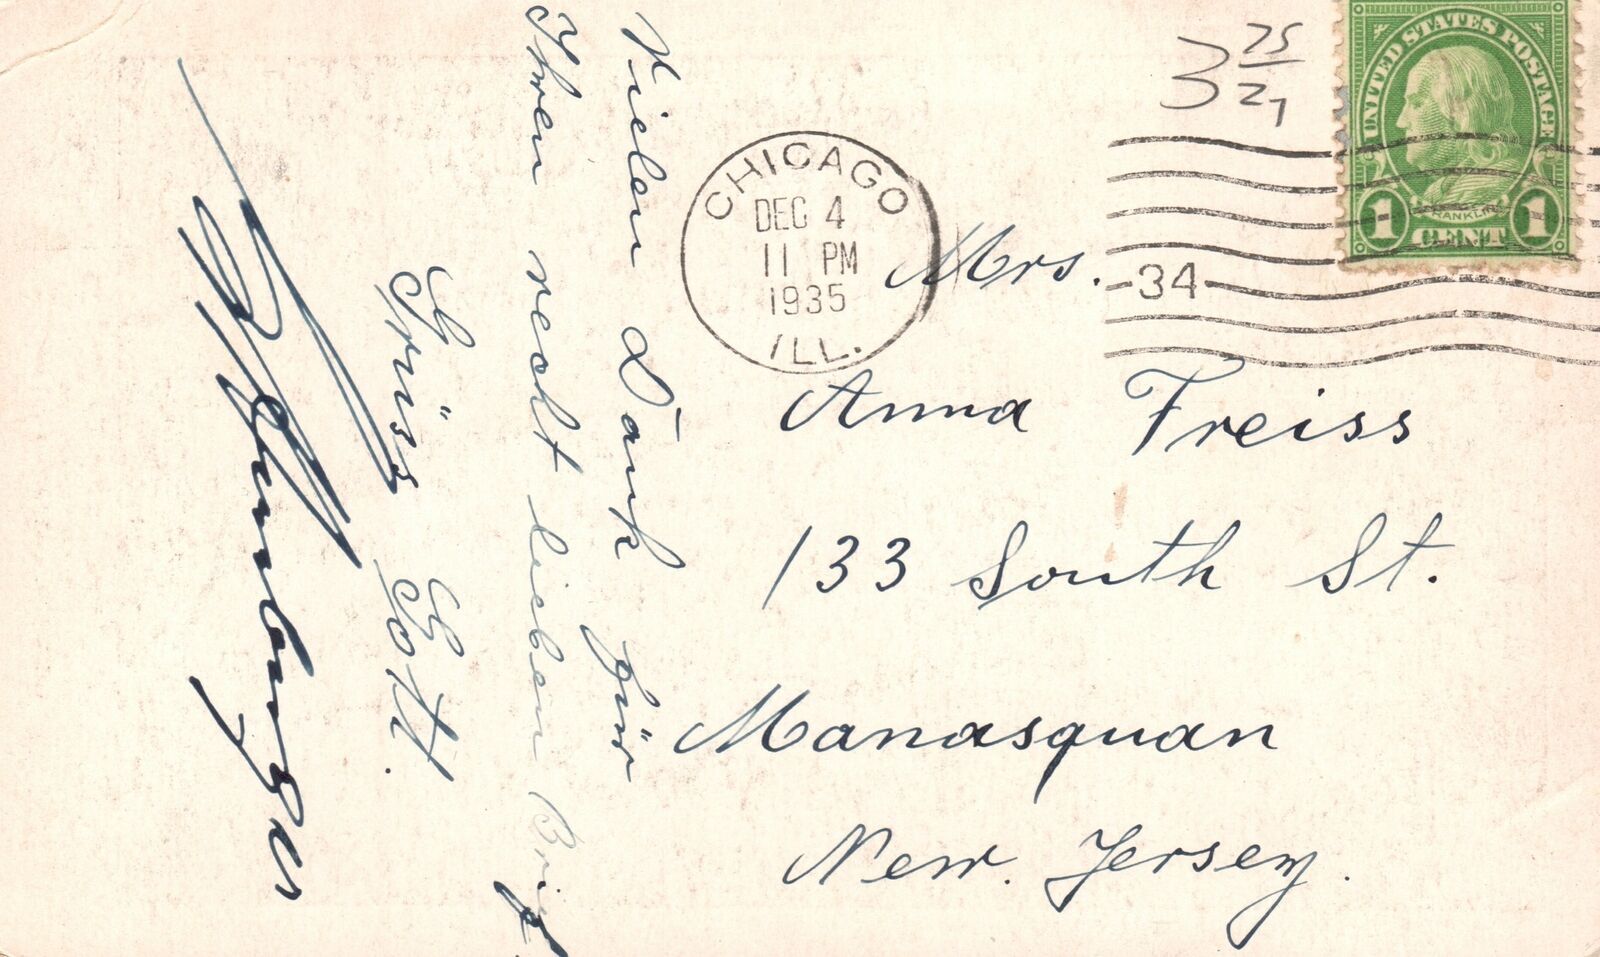 Vielen Dank für
Ihren recht lieben Brief
Grüss Gott.
CHICAGO
DEC 4
11 PM
1935
ILL.
34
3 25/27
UNITED STATES POSTAGE
FRANKLIN
1 CENT 1
Mrs.
Anna Freiss
133 South St.
Manasquan
New. Jersey.